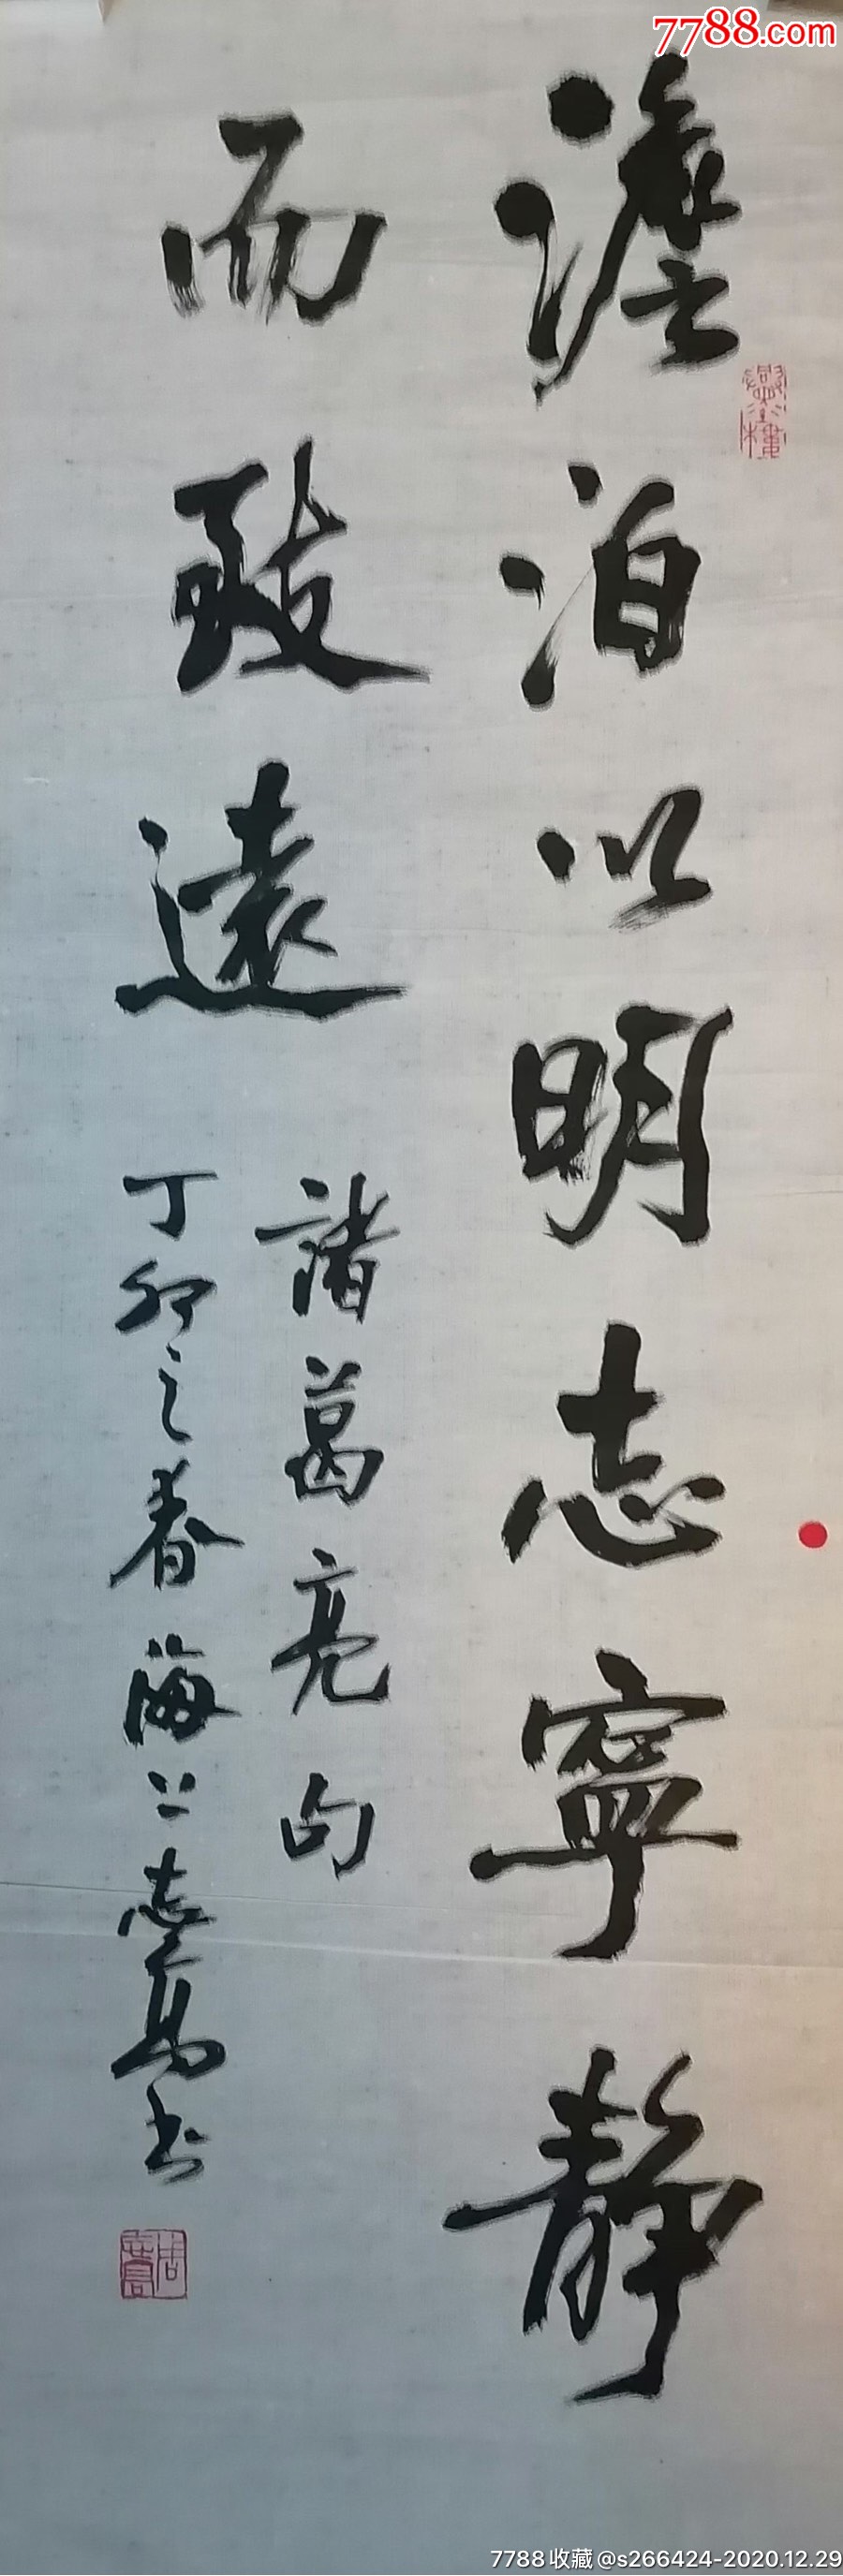 7788.com
澹泊以明志寧静
而致遠
諸葛亮句
丁卯之春海上志高书
周志高
7788收藏@s266424-2020.12.29